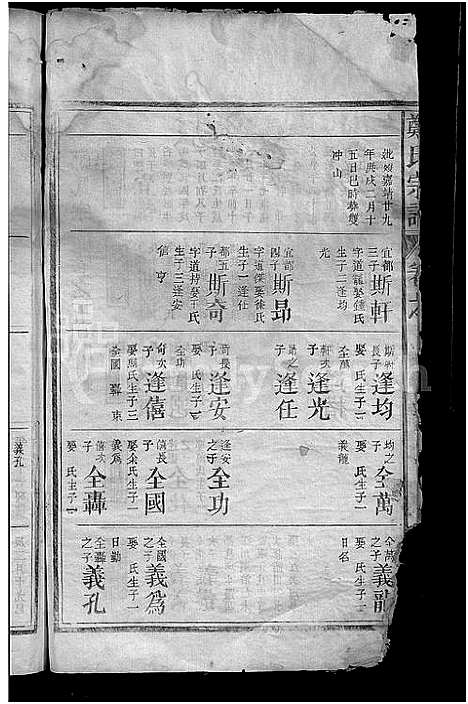 鄭氏宗譜
卷六
妣嫂嘉靖廿九
年庚戌二月十
五日巳時葬雙
冲山
宜都三子 斯軒
字道 娶鍾氏
生子二逢均
光
宜都四子 斯昻
字道 娶徐氏
生子一逢任
都五子 斯奇
字道 娶 氏
生子三逢安
僖 亨
斯軒長子 逢均
娶 氏生子一
全萬
軒次子 逢光
昻之子 逢任
奇長子 逢安
娶 氏生子一
全功
奇次子 逢僖
娶 氏生子三
全國 轟 東
均之子 全萬
娶 氏生子一
義龍
逢安之子 全功
僖長子 全國
娶余氏生子一
義為
僖次子 全轟
娶 氏生子一
義孔
全萬之子 義龍
娶 氏生子一
日名
全國之子 義為
娶 氏生子一
日勤
全轟之子 義孔